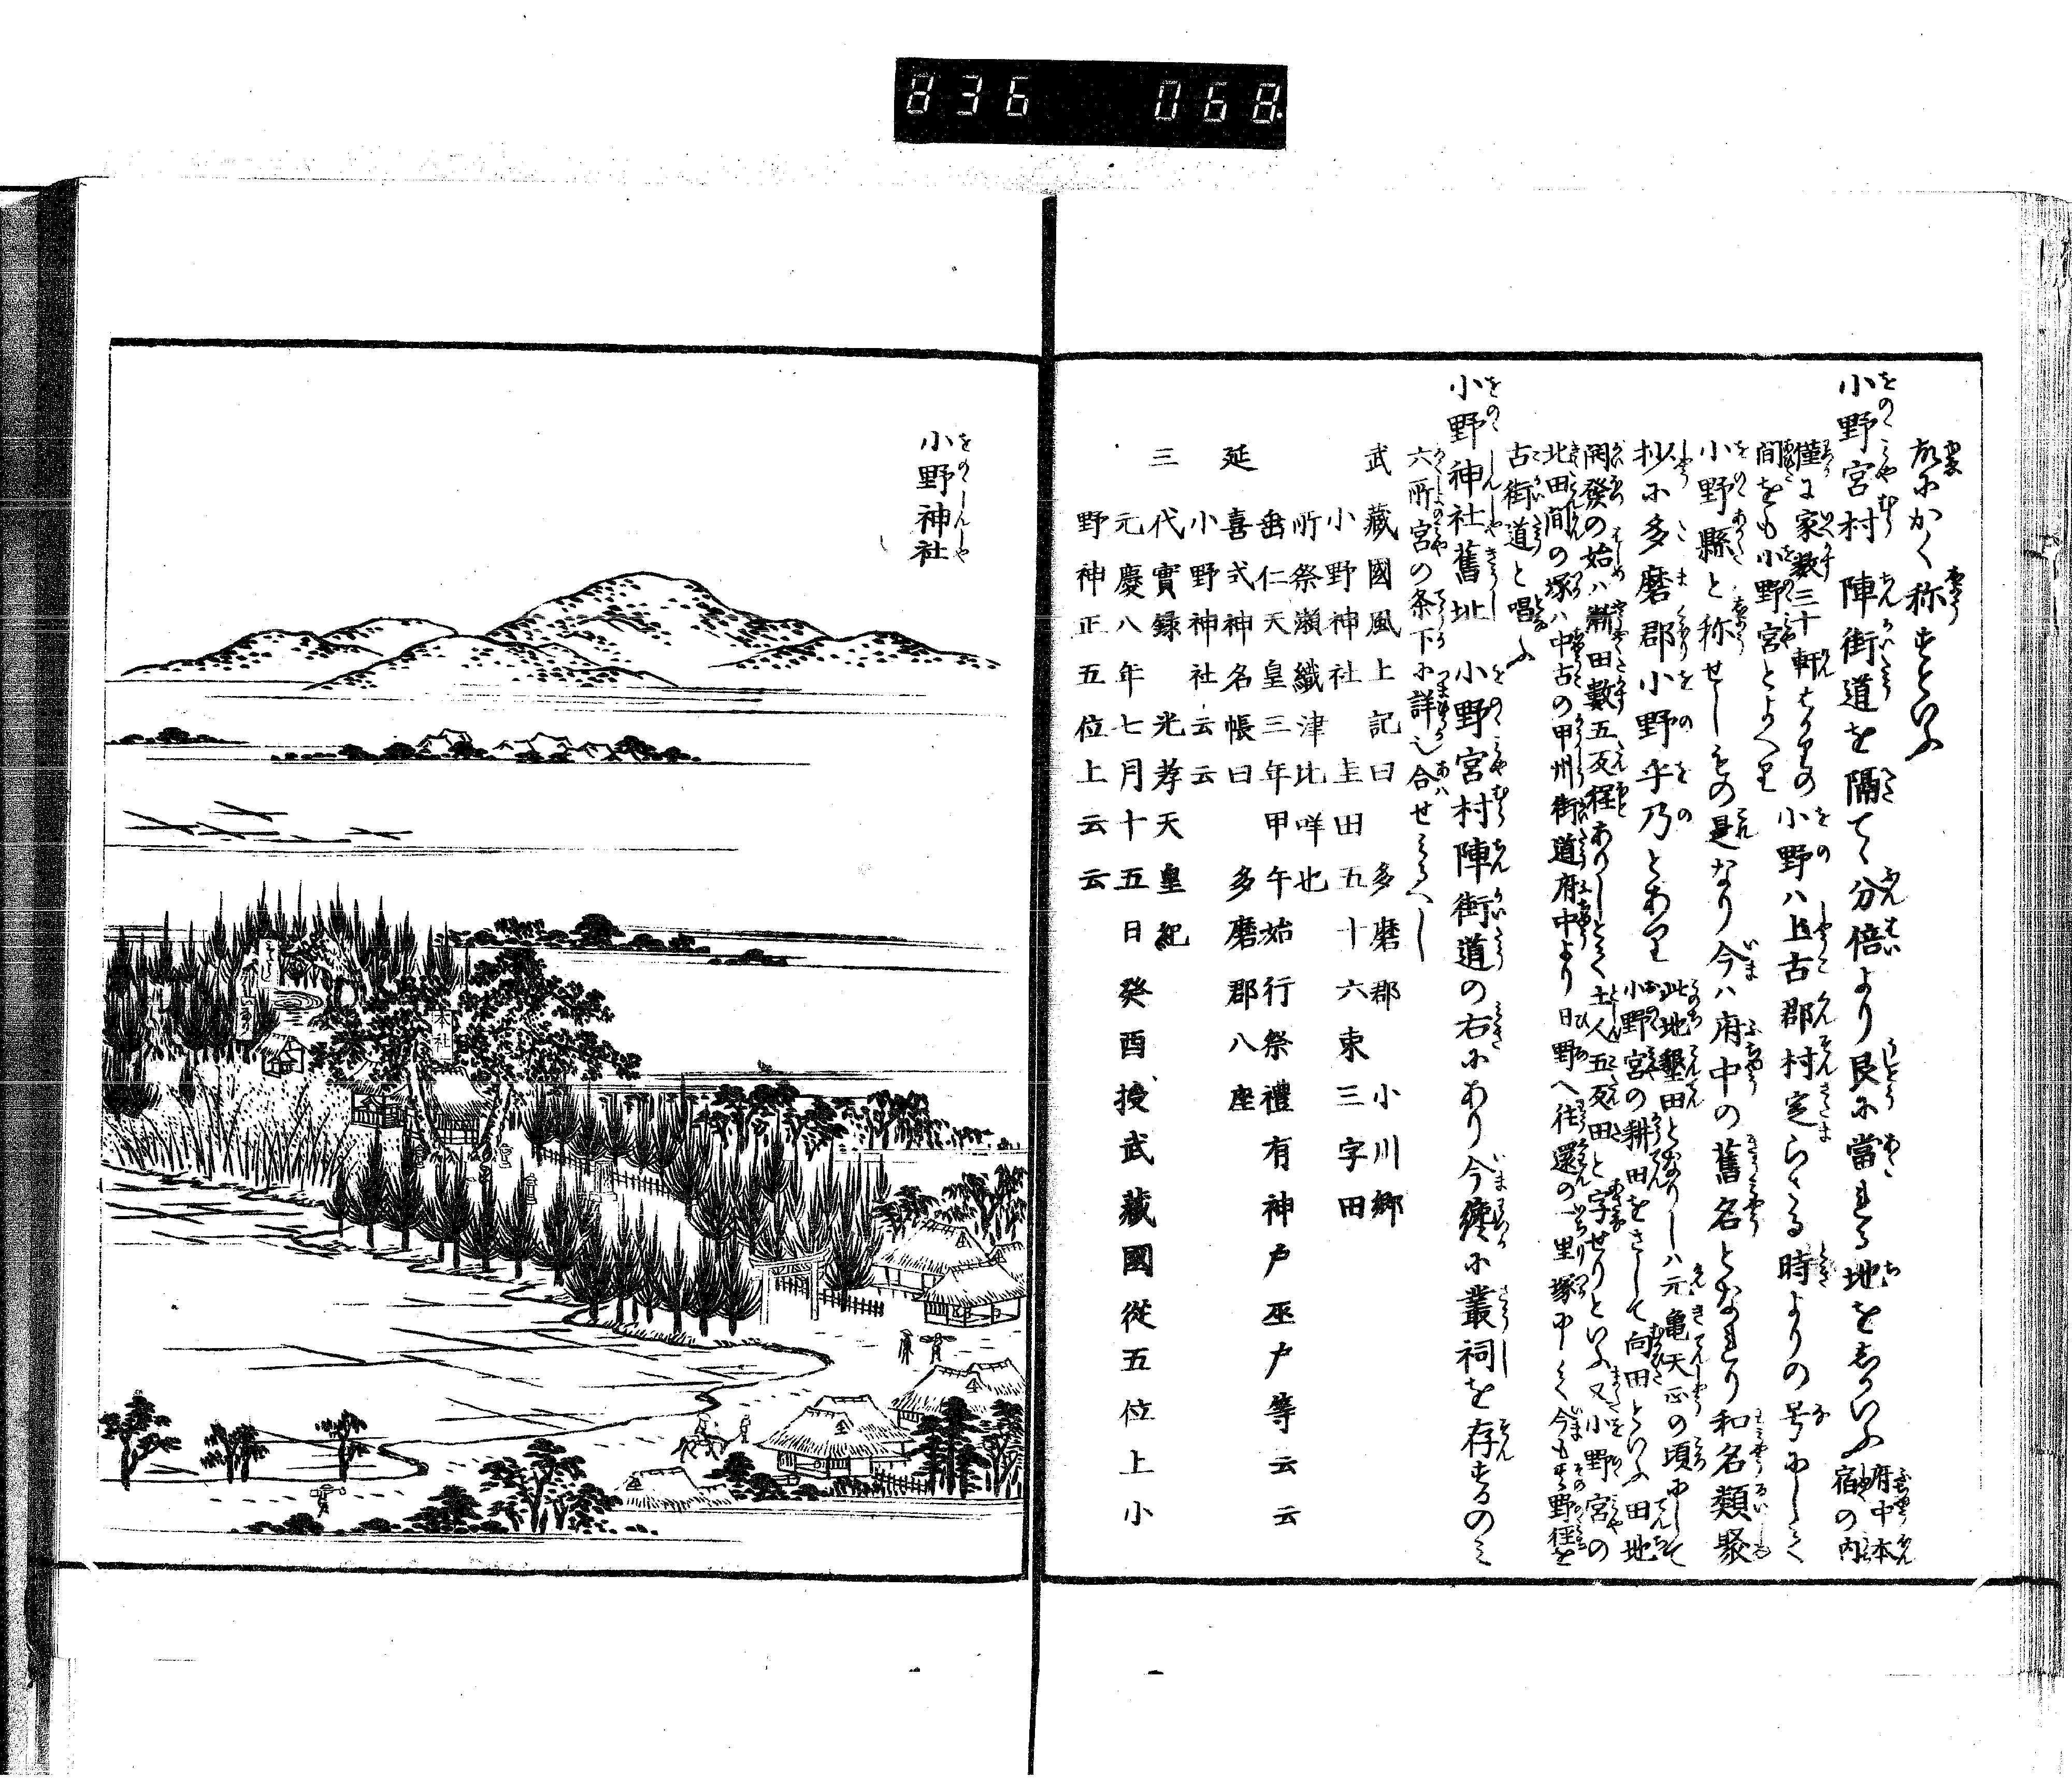 836 068
故にかく称すといふ
小野宮村 陣街道を隔てゝ分倍より艮に當れる地をしかいふ 府中本
宿の内
僅に家数三十軒はかりの
間をも小野宮とよへり
小野ハ上古郡村定らさる時よりの号にして
小野縣と称せしもの是なり今ハ府中の舊名となれり和名類聚
抄に多磨郡小野乎乃とあり
此地墾田となりしハ元亀天正の頃にして
小野宮の耕田をさして向田といふ田地
開發の始ハ漸田數五反程ありしとて土人五反田と字せりといふ又小野宮の
北田間の塚ハ中古の甲州街道府中より日野へ往還の一里塚にして今も其野徑を
古街道と唱ふ
小野神社舊址 小野宮村陣街道の右にあり今纔に叢祠を存するのミ
六所宮の条下に詳也合せみるへし
武藏國風土記曰 多磨郡 小川郷
小野神社 圭田五十六束三字田
所祭瀬織津比咩也
垂仁天皇三年甲午始行祭禮有神戸巫戸等云云
延喜式神名帳曰 多磨郡八座
小野神社云云
三代實録 光孝天皇紀
元慶八年七月十五日癸酉授武藏國從五位上小
野神正五位上云云
小野神社
本社